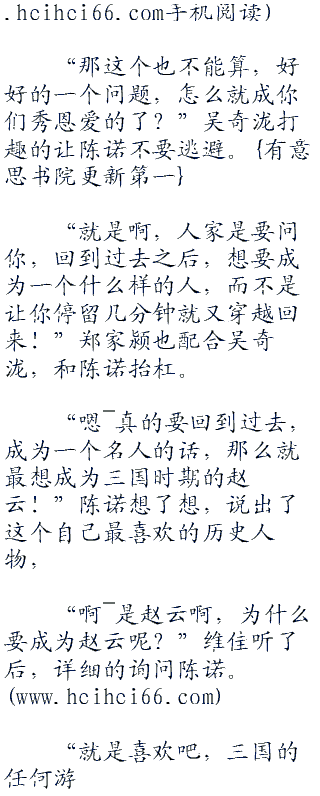 .hcihci66.com手机阅读)
“那这个也不能算，好
好的一个问题，怎么就成你
们秀恩爱的了？”吴奇泷打
趣的让陈诺不要逃避。{有意
思书院更新第一}
“就是啊，人家是要问
你，回到过去之后，想要成
为一个什么样的人，而不是
让你停留几分钟就又穿越回
来！”郑家颍也配合吴奇
泷，和陈诺抬杠。
“嗯¯真的要回到过去，
成为一个名人的话，那么就
最想成为三国时期的赵
云！”陈诺想了想，说出了
这个自己最喜欢的历史人
物，
“啊¯是赵云啊，为什么
要成为赵云呢？”维佳听了
后，详细的询问陈诺。
(www.hcihci66.com)
“就是喜欢吧，三国的
任何游